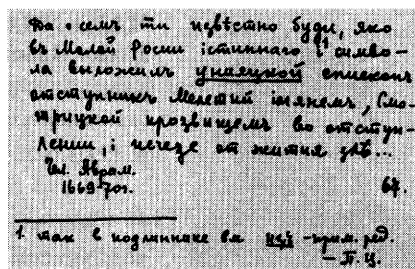 Да о семъ ти извѣстно буди, яко
въ Малой Росии істиннаго i¹ симво-
ла выложилъ унаяцкой епископъ
отступникъ Мелетий именемъ, Смо-
трицкой прозвищемъ во отступ-
лении, і исчезе от жития злѣ...
Чл. Аврам.
1669-70гг. 67.
1. так в подлиннике вм изъ - прим. ред.
- П. Ц.